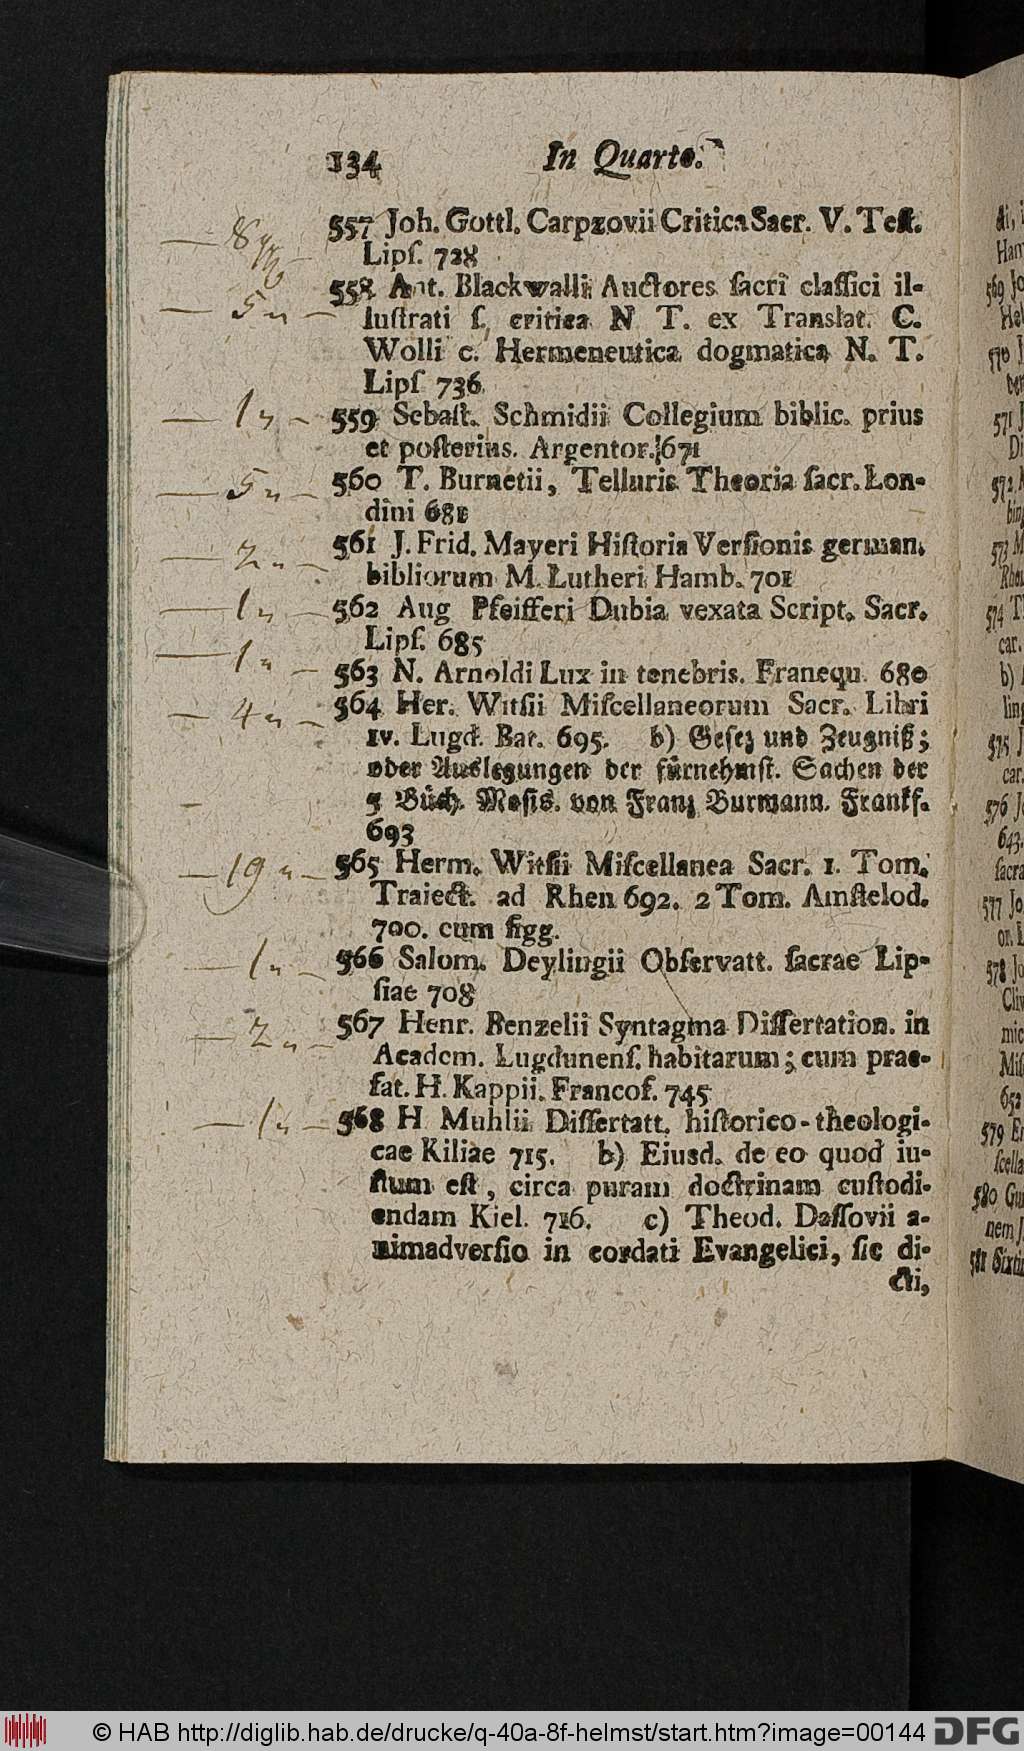 134 In Quarto.
557 Joh. Gottl. Carpzovii Critica Sacr. V. Test.
Lipſ. 728
558 Ant. Blackwalli Auctores ſacri claſſici il-
luſtrati ſ. critica N T. ex Translat. C.
Wolli c. Hermeneutica dogmatica N. T.
Lipſ 736
559 Sebaſt. Schmidii Collegium biblic. prius
et poſterius. Argentor. 1671
560 T. Burnetii, Telluris Theoria ſacr. Lon-
dini 681
561 J. Frid. Mayeri Hiſtoria Verſionis german.
bibliorum M. Lutheri Hamb. 701
562 Aug Pfeifferi Dubia vexata Script. Sacr.
Lipſ. 685
563 N. Arnoldi Lux in tenebris. Franequ. 680
564 Her. Witſii Miſcellaneorum Sacr. Libri
IV. Lugd. Bat. 695. b) Geſez und Zeugniß;
oder Auslegungen der fürnehmſt. Sachen der
5 Büch. Moſis. von Franz Burmann. Frankf.
693
565 Herm. Witſii Miſcellanea Sacr. 1. Tom.
Traiect. ad Rhen 692. 2 Tom. Amſtelod.
700. cum figg.
566 Salom. Deylingii Obſervatt. ſacrae Lip-
ſiae 708
567 Henr. Benzelii Syntagma Diſſertation. in
Academ. Lugdunenſ. habitarum; cum prae-
fat. H. Kappii. Francof. 745
568 H Muhlii Diſſertatt. hiſtorico-theologi-
cae Kiliae 715. b) Eiusd. de eo quod iu-
ſtum eſt, circa puram doctrinam cuſtodi-
endam Kiel. 716. c) Theod. Daſſovii a-
nimadverſio in cordati Evangelici, ſic di-
cti,
8
5
1
5
2
1
1
4
19
1
2
1
© HAB http://diglib.hab.de/drucke/q-40a-8f-helmst/start.htm?image=00144 DFG